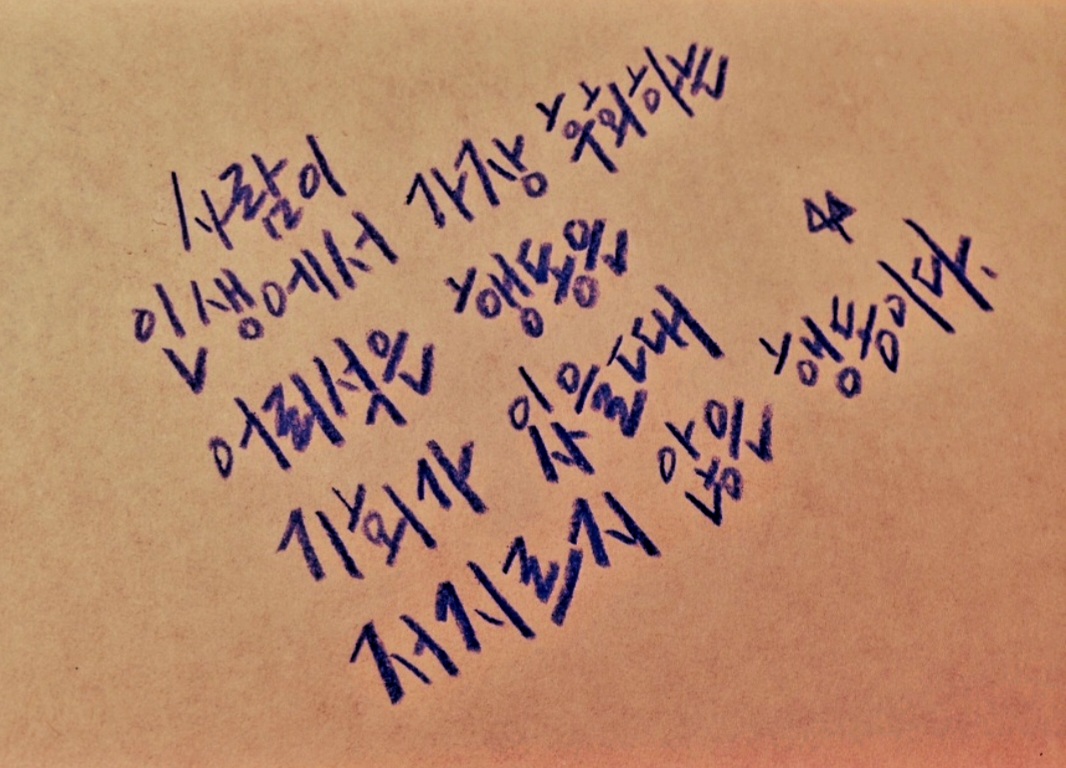 사람이
인생에서 가장 후회하는
어리석은 행동은
기회가 있을때
저지르지 않은 행동이다.